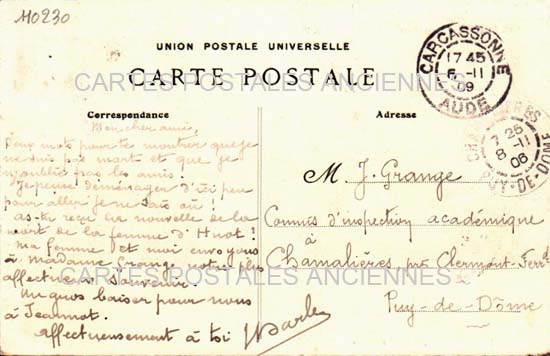 110230
UNION POSTALE UNIVERSELLE
CARTE POSTALE
CARTES POSTALES ANCIENNES
CARCASSONNE
17 45
6 -11
09
AUDE
Correspondance
Mon cher ami,
Deux mots pour te montrer que je
ne suis pas mort et que je
n'oublie pas les amis !
Je pense déménager d'ici peu
pour aller je ne sais où !
As-tu reçu la nouvelle de la
mort de la femme d'Huot !
Ma femme et moi envoyons
à Madame Grange notre plus
affectueux souvenir.
Un gros baiser pour nous
à Jeannot.
Affectueusement à toi
Adresse
26
8 -11
PUY-DE-DOME
M J. Grange
Commis d'inspection académique
à
Chamalières près Clermont-Ferrd
Puy-de-Dôme
CARTES POSTALES ANCIENNES